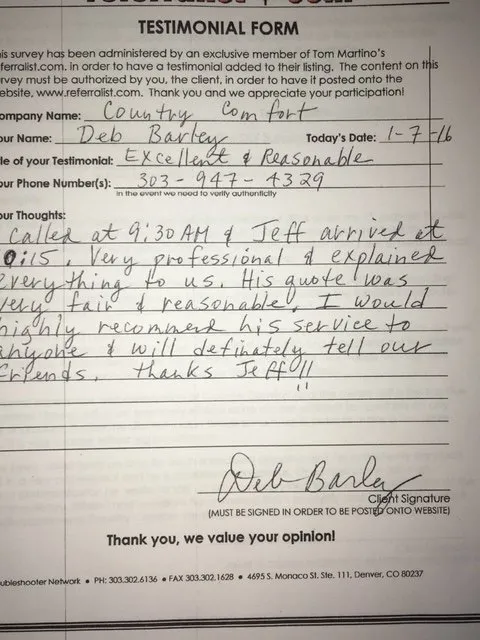 TESTIMONIAL FORM
is survey has been administered by an exclusive member of Tom Martino's
ferralist.com. in order to have a testimonial added to their listing. The content on this
rvey must be authorized by you, the client, in order to have it posted onto the
ebsite, www.referralist.com. Thank you and we appreciate your participation!
ompany Name: Country Comfort
our Name: Deb Barley Today's Date: 1-7-16
le of your Testimonial: Excellent & Reasonable
our Phone Number(s): 303-947-4329
In the event we need to verify authenticity
our Thoughts:
called at 9:30 AM & Jeff arrived at
0:15. Very professional & explained
everything to us. His quote was
very fair & reasonable. I would
highly recommend his service to
anyone & will definately tell our
friends. thanks Jeff!!
Deb Barley
Client Signature
(MUST BE SIGNED IN ORDER TO BE POSTED ONTO WEBSITE)
Thank you, we value your opinion!
ubleshooter Network • PH: 303.302.6136 • FAX 303.302.1628 • 4695 S. Monaco St. Ste. 111, Denver, CO 80237